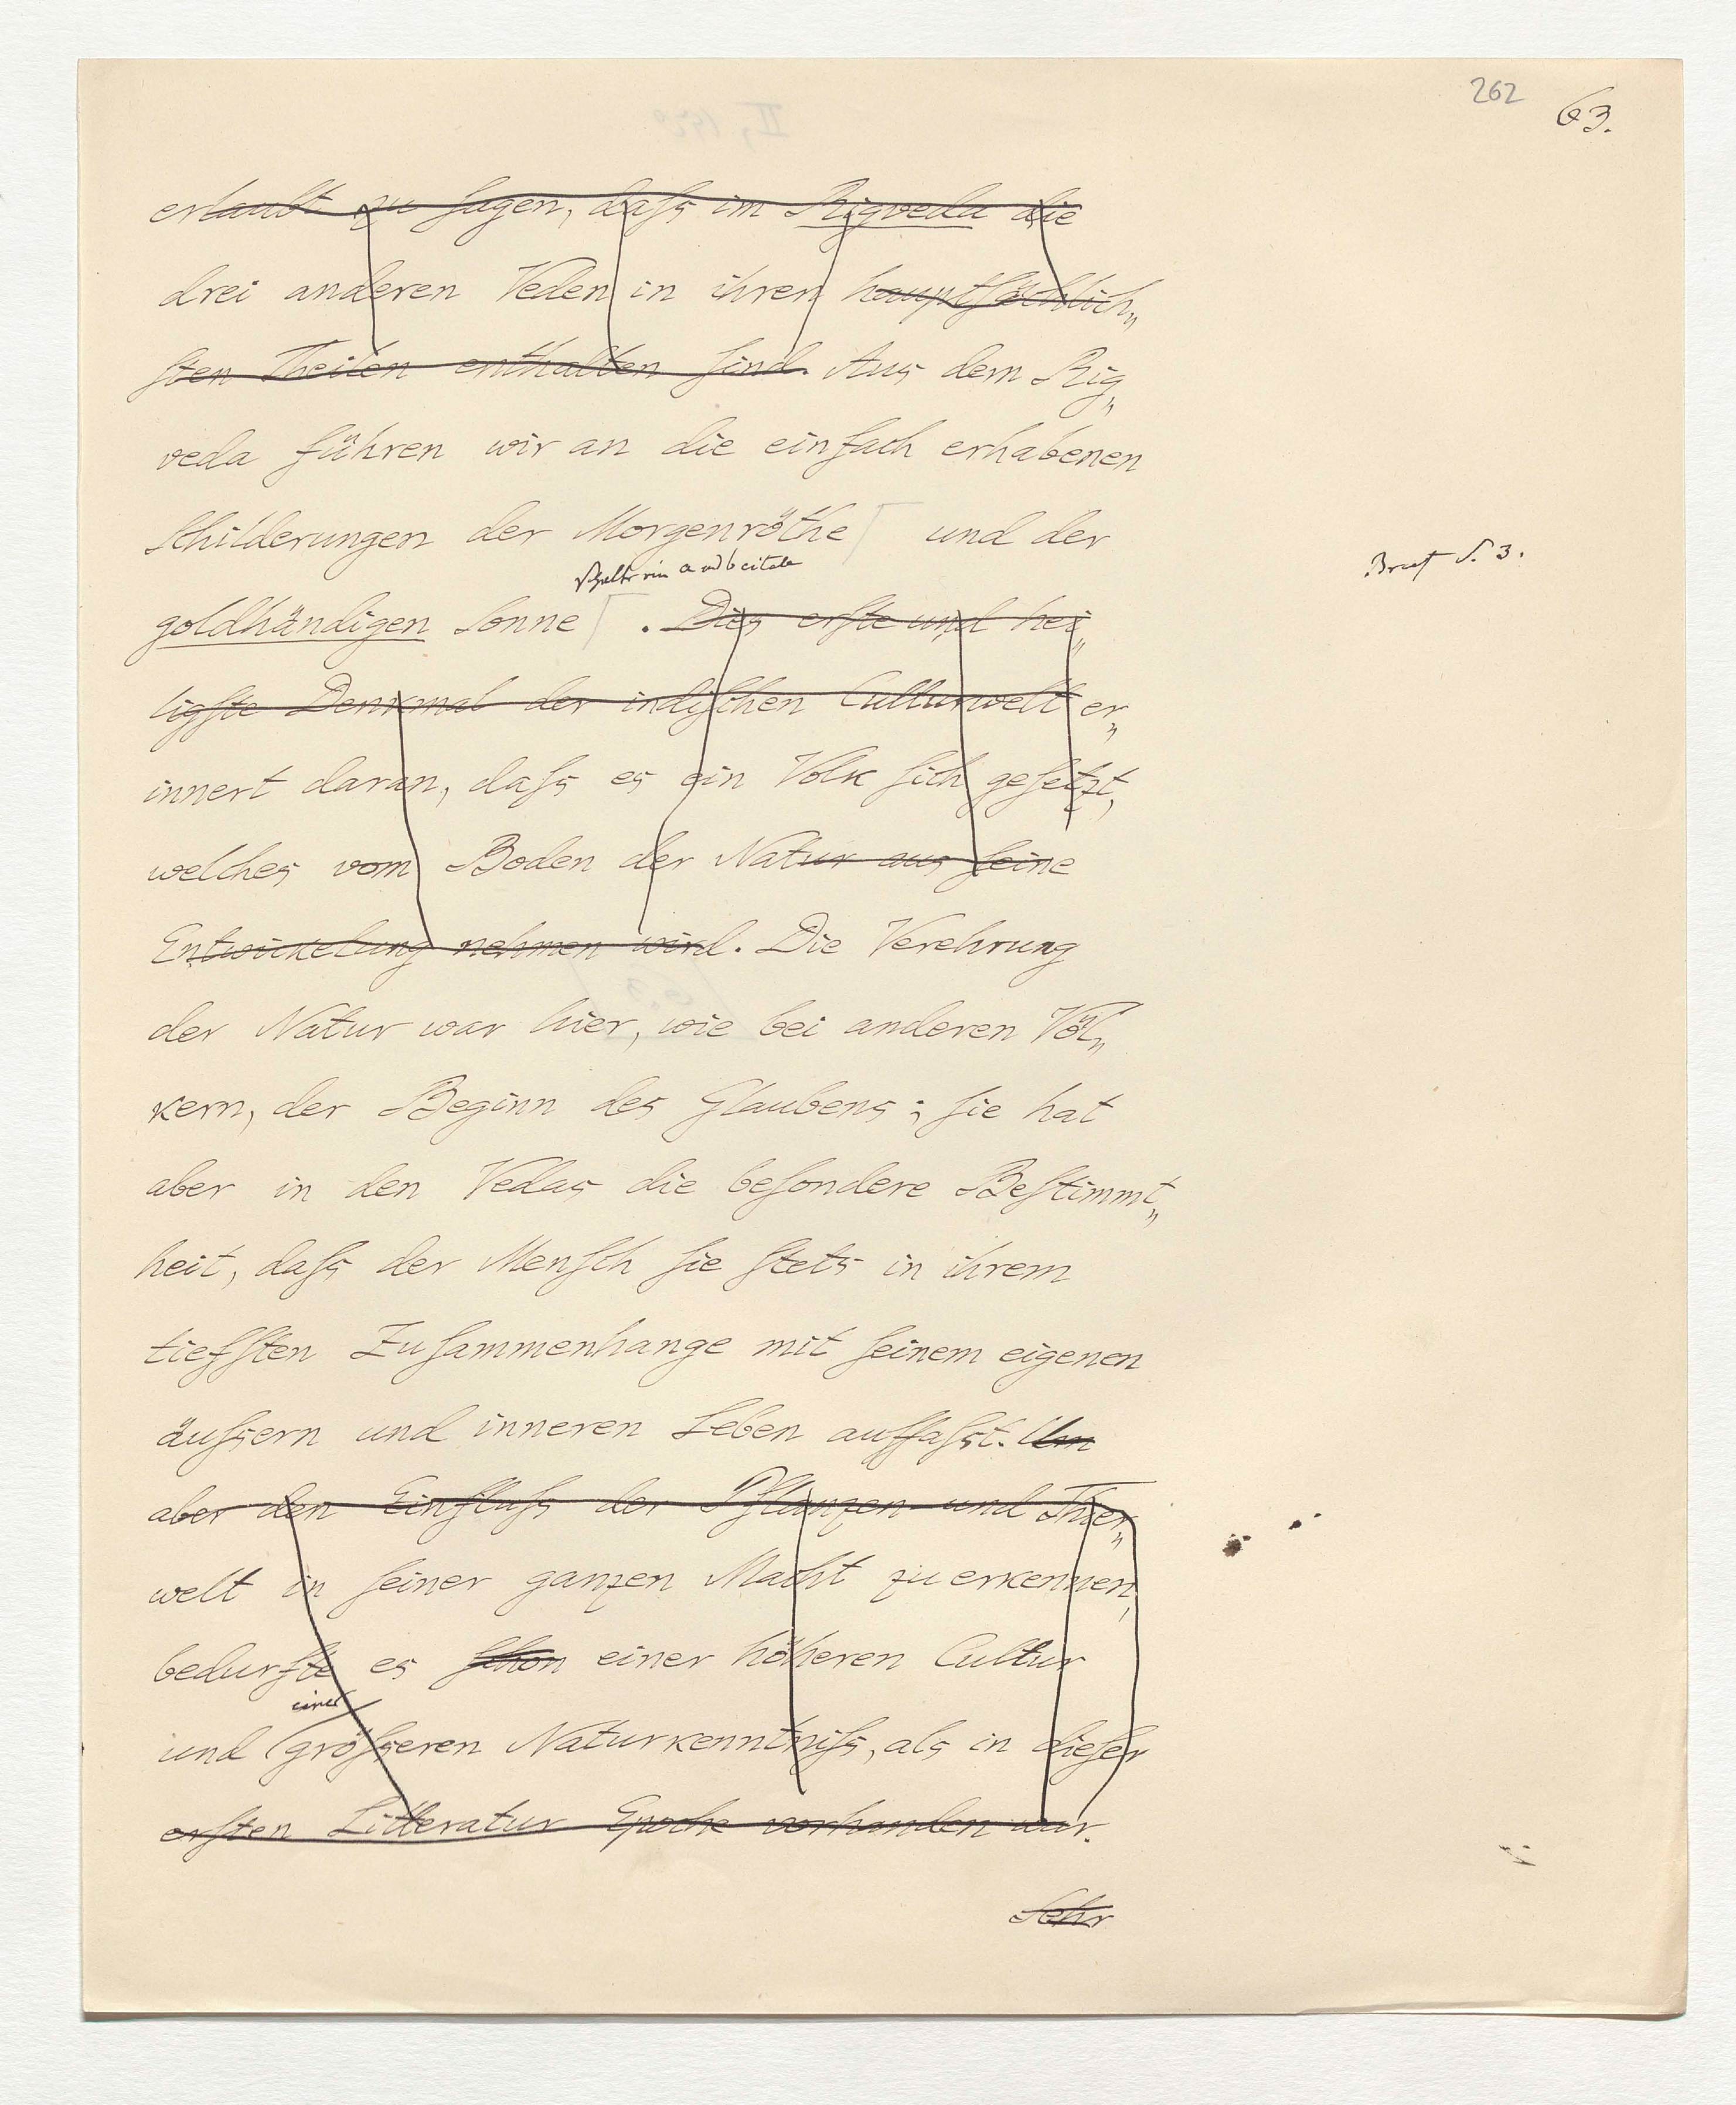 262
63.
erlaubt zu sagen, daſs im Rigveda die
drei anderen Veden in ihren hauptſächlich„
ſten Theilen enthalten ſind. Aus dem Rig„
veda führen wir an die einfach erhabenen
Schilderungen der Morgenröthe und der
Brief S. 3.
goldhändigen Sonne . Dies erſte und hei„
ligſte Denkmal der indiſchen Culturwelt er„
innert daran, daſs es ein Volk ſich geſetzt,
welches vom Boden der Natur aus ſeine
Entwickelung nehmen wird. Die Verehrung
der Natur war hier, wie bei anderen Völ„
kern, der Beginn des Glaubens; ſie hat
aber in den Vedas die beſondere Beſtimmt„
heit, daſs der Menſch ſie ſtets in ihrem
tiefſten Zuſammenhange mit ſeinem eigenen
äuſsern und inneren Leben auffaſst. Um
aber den Einfluſs der Pflanzen- und Thier„
welt in ſeiner ganzen Macht zu erkennen,
bedurfte es ſchon einer höheren Cultur
einer
und größeren Naturkenntniſs, als in dieſer
erſten Litteratur Epoche vorhanden war.
Sehr